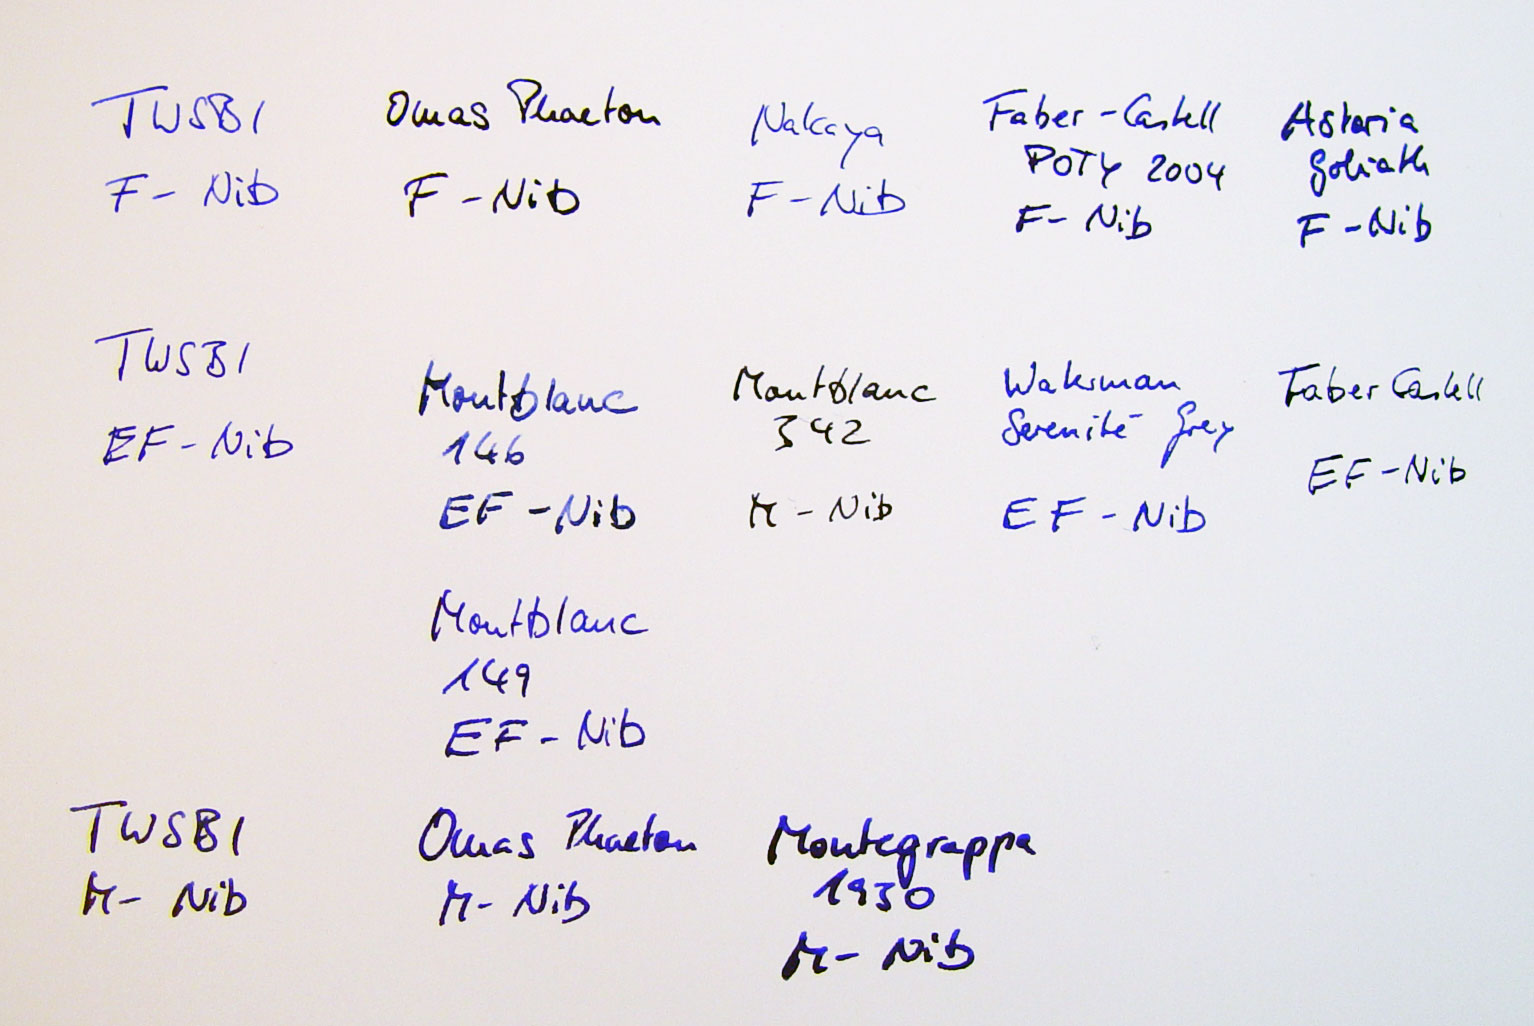 TWSBI
F - Nib
Omas Phaeton
F - Nib
Nakaya
F - Nib
Faber - Castell
POTY 2004
F - Nib
Astoria
Goliath
F - Nib
TWSBI
EF - Nib
Montblanc
146
EF - Nib
Montblanc
342
M - Nib
Waterman
Serenité Grey
EF - Nib
Faber Castell
EF - Nib
Montblanc
149
EF - Nib
TWSBI
M - Nib
Omas Phaeton
M - Nib
Montegrappa
1930
M - Nib